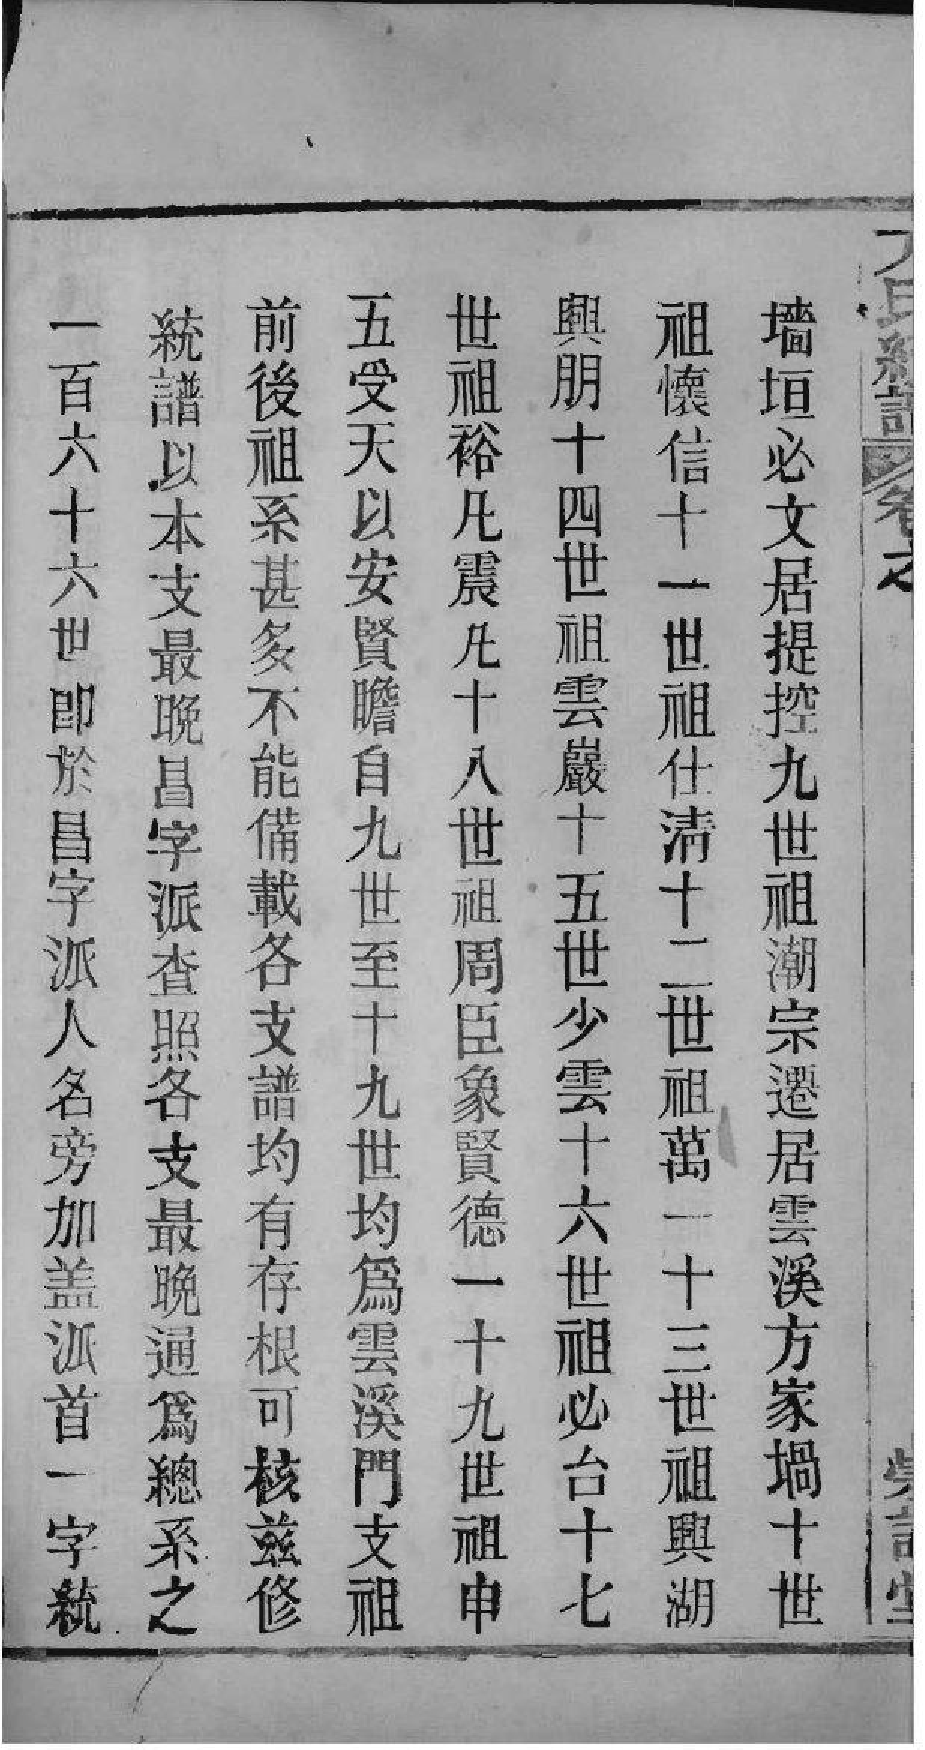 氏統譜
卷之
墻垣必文居提控九世祖潮宗遷居雲溪方家堝十世
祖懷信十一世祖仕淸十二世祖萬一十三世祖興湖
興朋十四世祖雲巖十五世少雲十六世祖必台十七
世祖裕凡震凡十八世祖周臣象賢德一十九世祖申
五受天以安賢瞻自九世至十九世均爲雲溪門支祖
前後祖系甚多不能備載各支譜均有存根可核茲修
統譜以本支最晩昌字派查照各支最晩通爲總系之
一百六十六世卽於昌字派人名旁加盖派首一字統